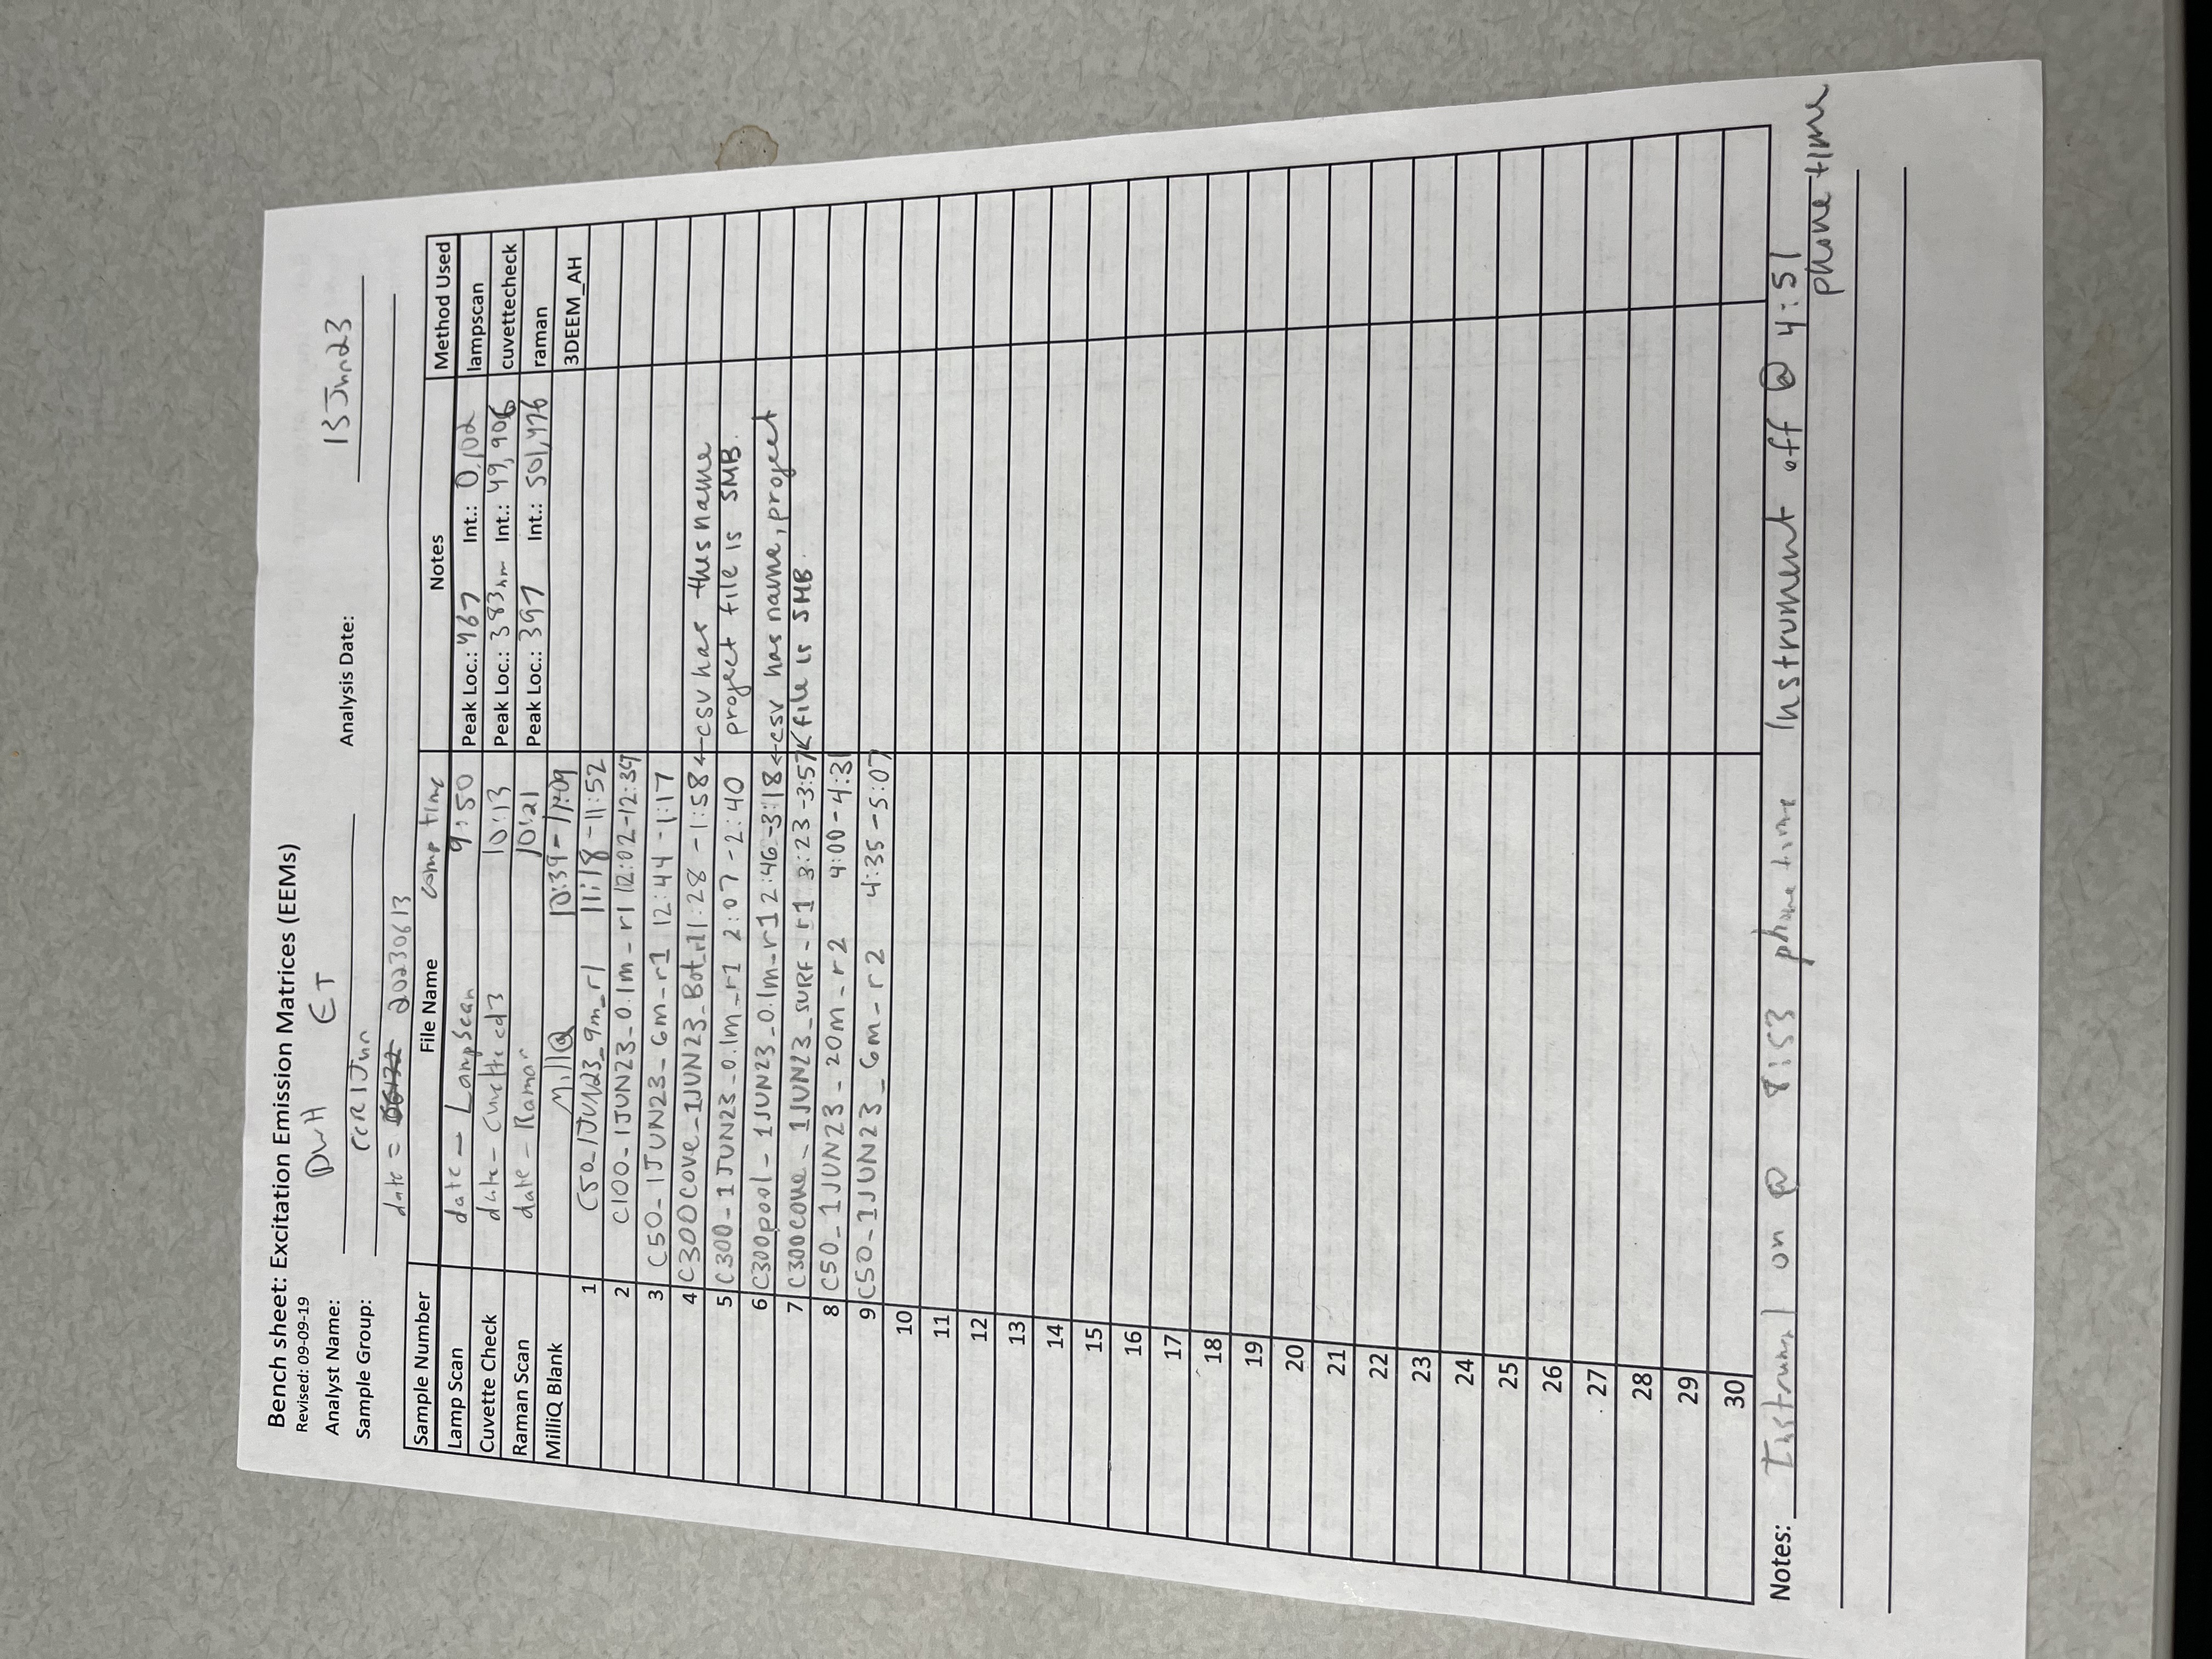 Bench sheet: Excitation Emission Matrices (EEMs)
Revised: 09-09-19
Analyst Name: DWH ET Analysis Date: 13Jun23
Sample Group: CCR1Jun
date = 20230613
Sample Number File Name comp time Notes Method Used
Lamp Scan date - LampScan 9:50 Peak Loc.: 467 Int.: 0.102 lampscan
Cuvette Check date - Cuvette cd3 10:13 Peak Loc.: 383nm Int.: 49,906 cuvettecheck
Raman Scan date - Raman 10:21 Peak Loc.: 397 Int.: 501,476 raman
MilliQ Blank MillQ 10:39 - 11:09 3DEEM_AH
1 C50_1JUN23_9m_r1 11:18 - 11:52
2 C100_1JUN23_0.1m_r1 12:02-12:34
3 C50_1JUN23_6m_r1 12:44 -1:17
4 C300cove_1JUN23_Bot_r1 1:28 - 1:58 ← csv has this name
5 C300_1JUN23_0.1m_r1 2:07 - 2:40 project file is SMB.
6 C300pool_1JUN23_0.1m_r1 2:46 -3:18 ← csv has name, project
7 C300cove_1JUN23_SURF_r1 3:23 -3:57 ← file is SMB.
8 C50_1JUN23_20m_r2 4:00 - 4:31
9 C50_1JUN23_6m_r2 4:35 -5:07
10
11
12
13
14
15
16
17
18
19
20
21
22
23
24
25
26
27
28
29
30
Notes: Instrument on @ 8:53 phone time Instrument off @ 4:51
phone time